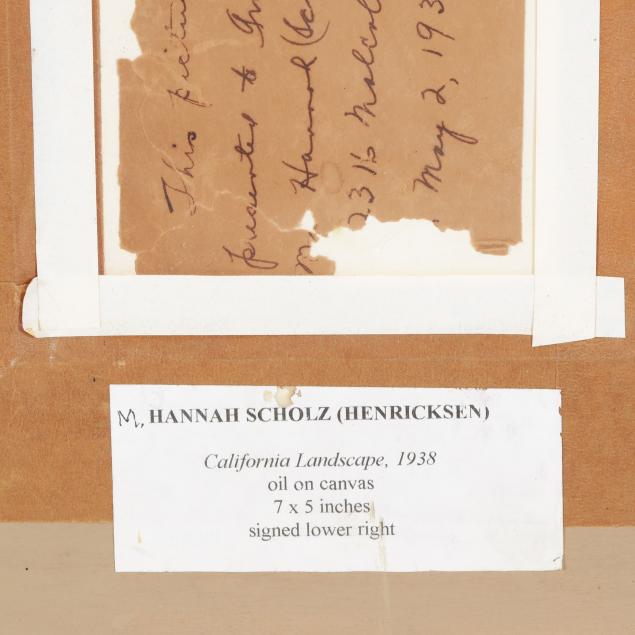 This
presented to
M. Hannah
2316
May 2, 193
M, HANNAH SCHOLZ (HENRICKSEN)
California Landscape, 1938
oil on canvas
7 x 5 inches
signed lower right